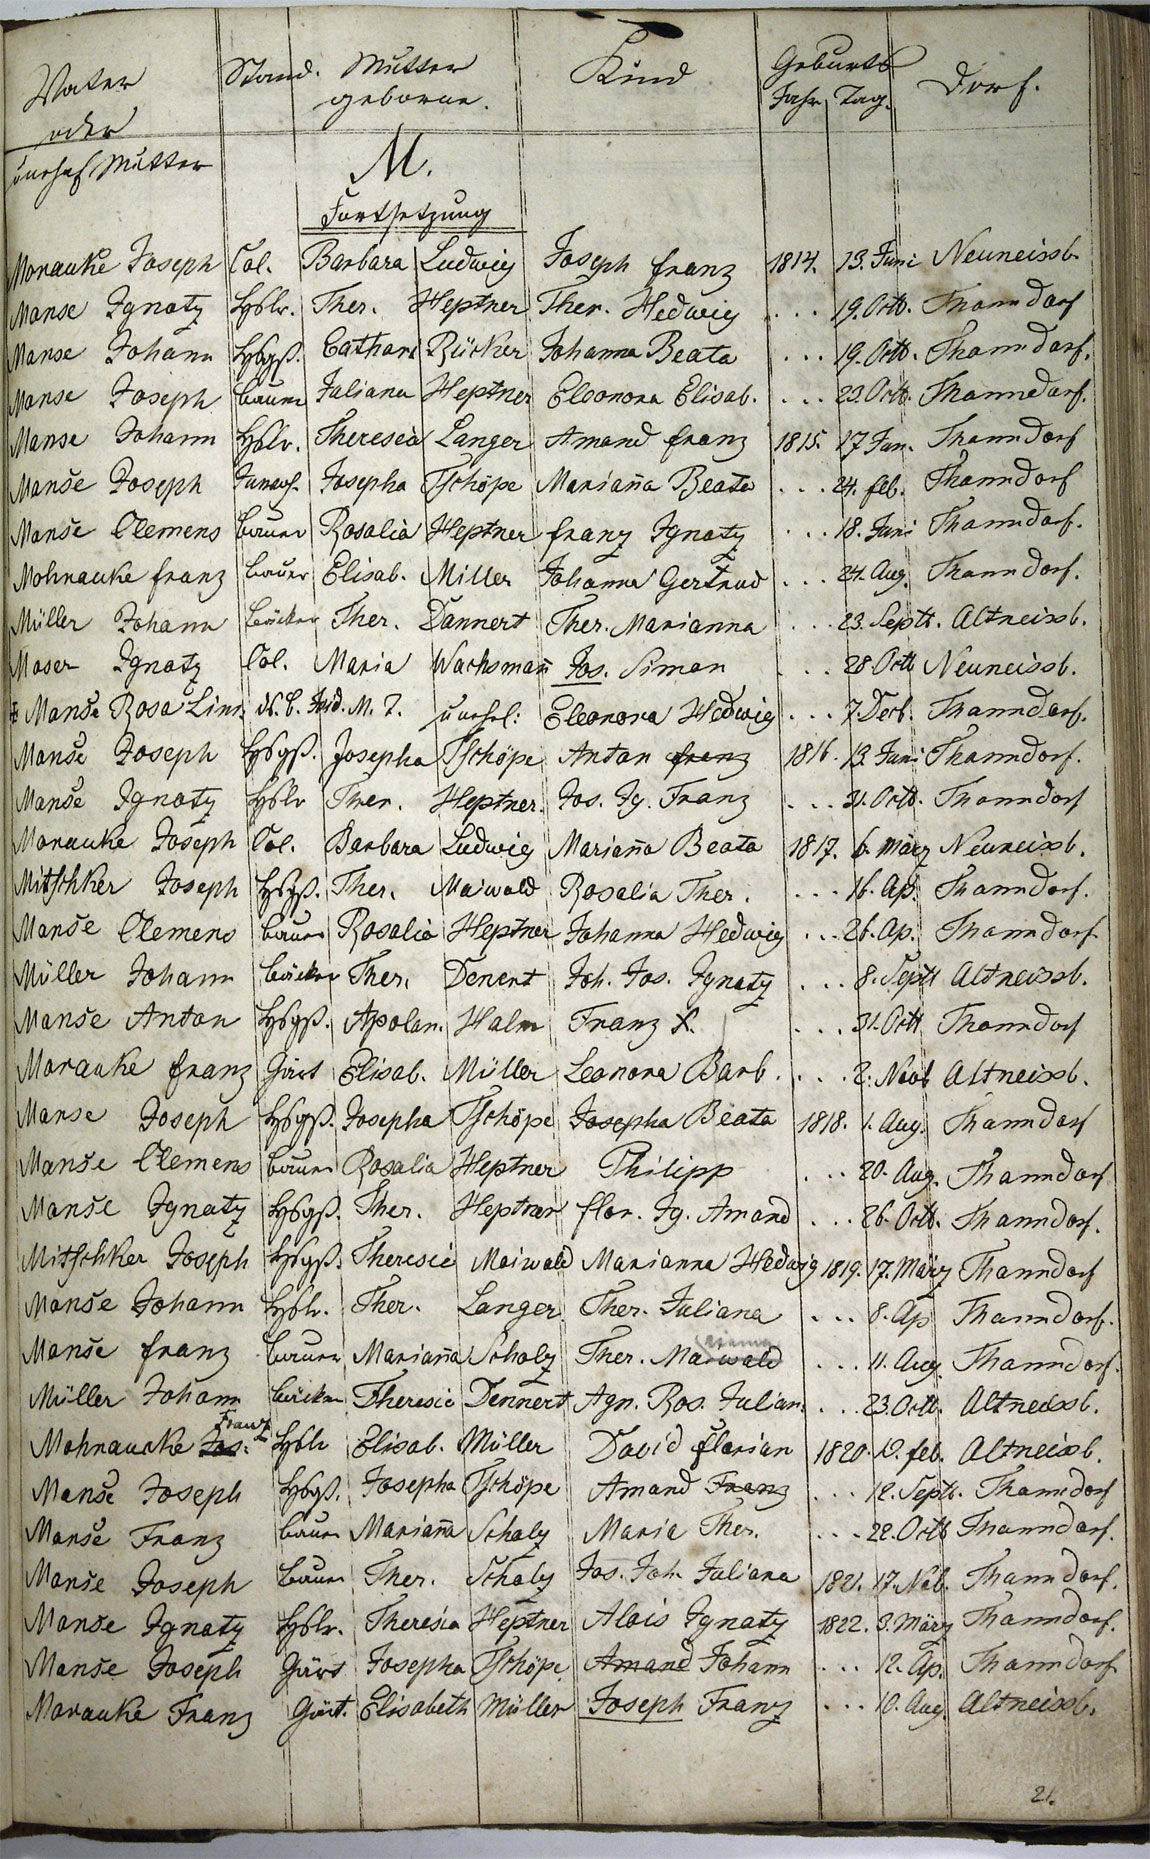 Vater Stand. Mutter Kind Geburts Dorf.
oder geborne. Jahr Tag.
unehel Mutter
M.
Fortsetzung
Morauke Joseph Col. Barbara Ludwig Joseph Franz 1814. 13. Juni Neuneissb.
Manse Ignatz Hslr. Ther. Heptner Ther. Hedwig ... 19. Octb. Thanndorf
Manse Johann Hsgß. Cathari Rücker Johanna Beata ... 19. Octb. Thanndorf.
Manse Joseph bauer Juliana Heptner Eleonora Elisab. ... 23. Octb. Thanndorf.
Manse Johann Hslr. Theresia Langer Amand Franz 1815. 17 Jan. Thanndorf
Manse Joseph Josepha Tschöpe Marian̄a Beata ... 24. feb. Thanndorf
Manse Clemens bauer Rosalia Heptner Franz Ignatz ... 18. Juni Thanndorf.
Mohnauke Franz bauer Elisab. Miller Johanna Gertrud ... 24. Aug. Thanndorf.
Müller Johann bäcker Ther. Dannert Ther. Marianna ... 23. Septb. Altneissb.
Moser Ignatz Col. Maria Wachsman̄ Jos. Simon ... 28 Octb Neuneissb.
Manse Rosa unehel: Eleonora Hedwig ... 7. Decb. Thanndorf.
Manse Joseph Hsgß. Josepha Tschöpe Anton Franz 1816. 13. Juni Thanndorf.
Manse Ignatz Hslr Ther. Heptner. Jos. Ig. Franz ... 31. Octb. Thanndorf
Morauke Joseph Col. Barbara Ludwig Marian̄a Beata 1817. 6. März Neuneissb.
Mitschker Joseph Hsgß. Ther. Maiwald Rosalia Ther. ... 16. Ap. Thanndorf.
Manse Clemens bauer Rosalia Heptner Johanna Hedwig ... 26. Ap. Thanndorf
Müller Johann bäcker Ther. Denert Joh. Jos. Ignatz ... 8. Septb Altneissb.
Manse Anton Hsgß. Apolon. Halm Franz X. ... 31. Octb Thanndorf
Morauke Franz Gärt Elisab. Müller Leonora Barb. ... 2. Novb Altneissb.
Manse Joseph Hsgß. Josepha Tschöpe Josepha Beata 1818. 1. Aug. Thanndorf
Manse Clemens bauer Rosalia Heptner Philipp ... 20. Aug. Thanndorf
Manse Ignatz Hsgß. Ther. Heptner flor. Ig. Amand ... 26. Octb. Thanndorf.
Mitschker Joseph Hsgß. Theresia Maiwald Marianna Hedwig 1819. 17. März Thanndorf
Manse Johann Hslr. Ther. Langer Ther. Juliana ... 8. Ap Thanndorf.
Manse Franz bauer Marian̄a Scholz Ther. Maiwald ... 11. Aug. Thanndorf.
Müller Johann bäcker Theresia Dennert Agn. Ros. Julian. ... 23. Octb. Altneissb.
Franz
Mohnaucke Jos. Hslr Elisab. Müller David Florian 1820. 12. feb. Altneissb.
Manse Joseph Hsgß. Josepha Tschöpe Amand Franz ... 12. Septb. Thanndorf
Manse Franz bauer Marian̄a Scholz Maria Ther. ... 22. Octb Thanndorf.
Manse Joseph bauer Ther. Scholz Jos. Joh. Juliana 1821. 17. Nob. Thanndorf.
Manse Ignatz Hslr. Theresia Heptner Alois Ignatz 1822. 3. März Thanndorf.
Manse Joseph Gärt Josepha Tschöpe Amand Johann ... 12. Ap. Thanndorf
Morauke Franz Gärt. Elisabeth Müller Joseph Franz ... 10. Aug Altneissb.
21.